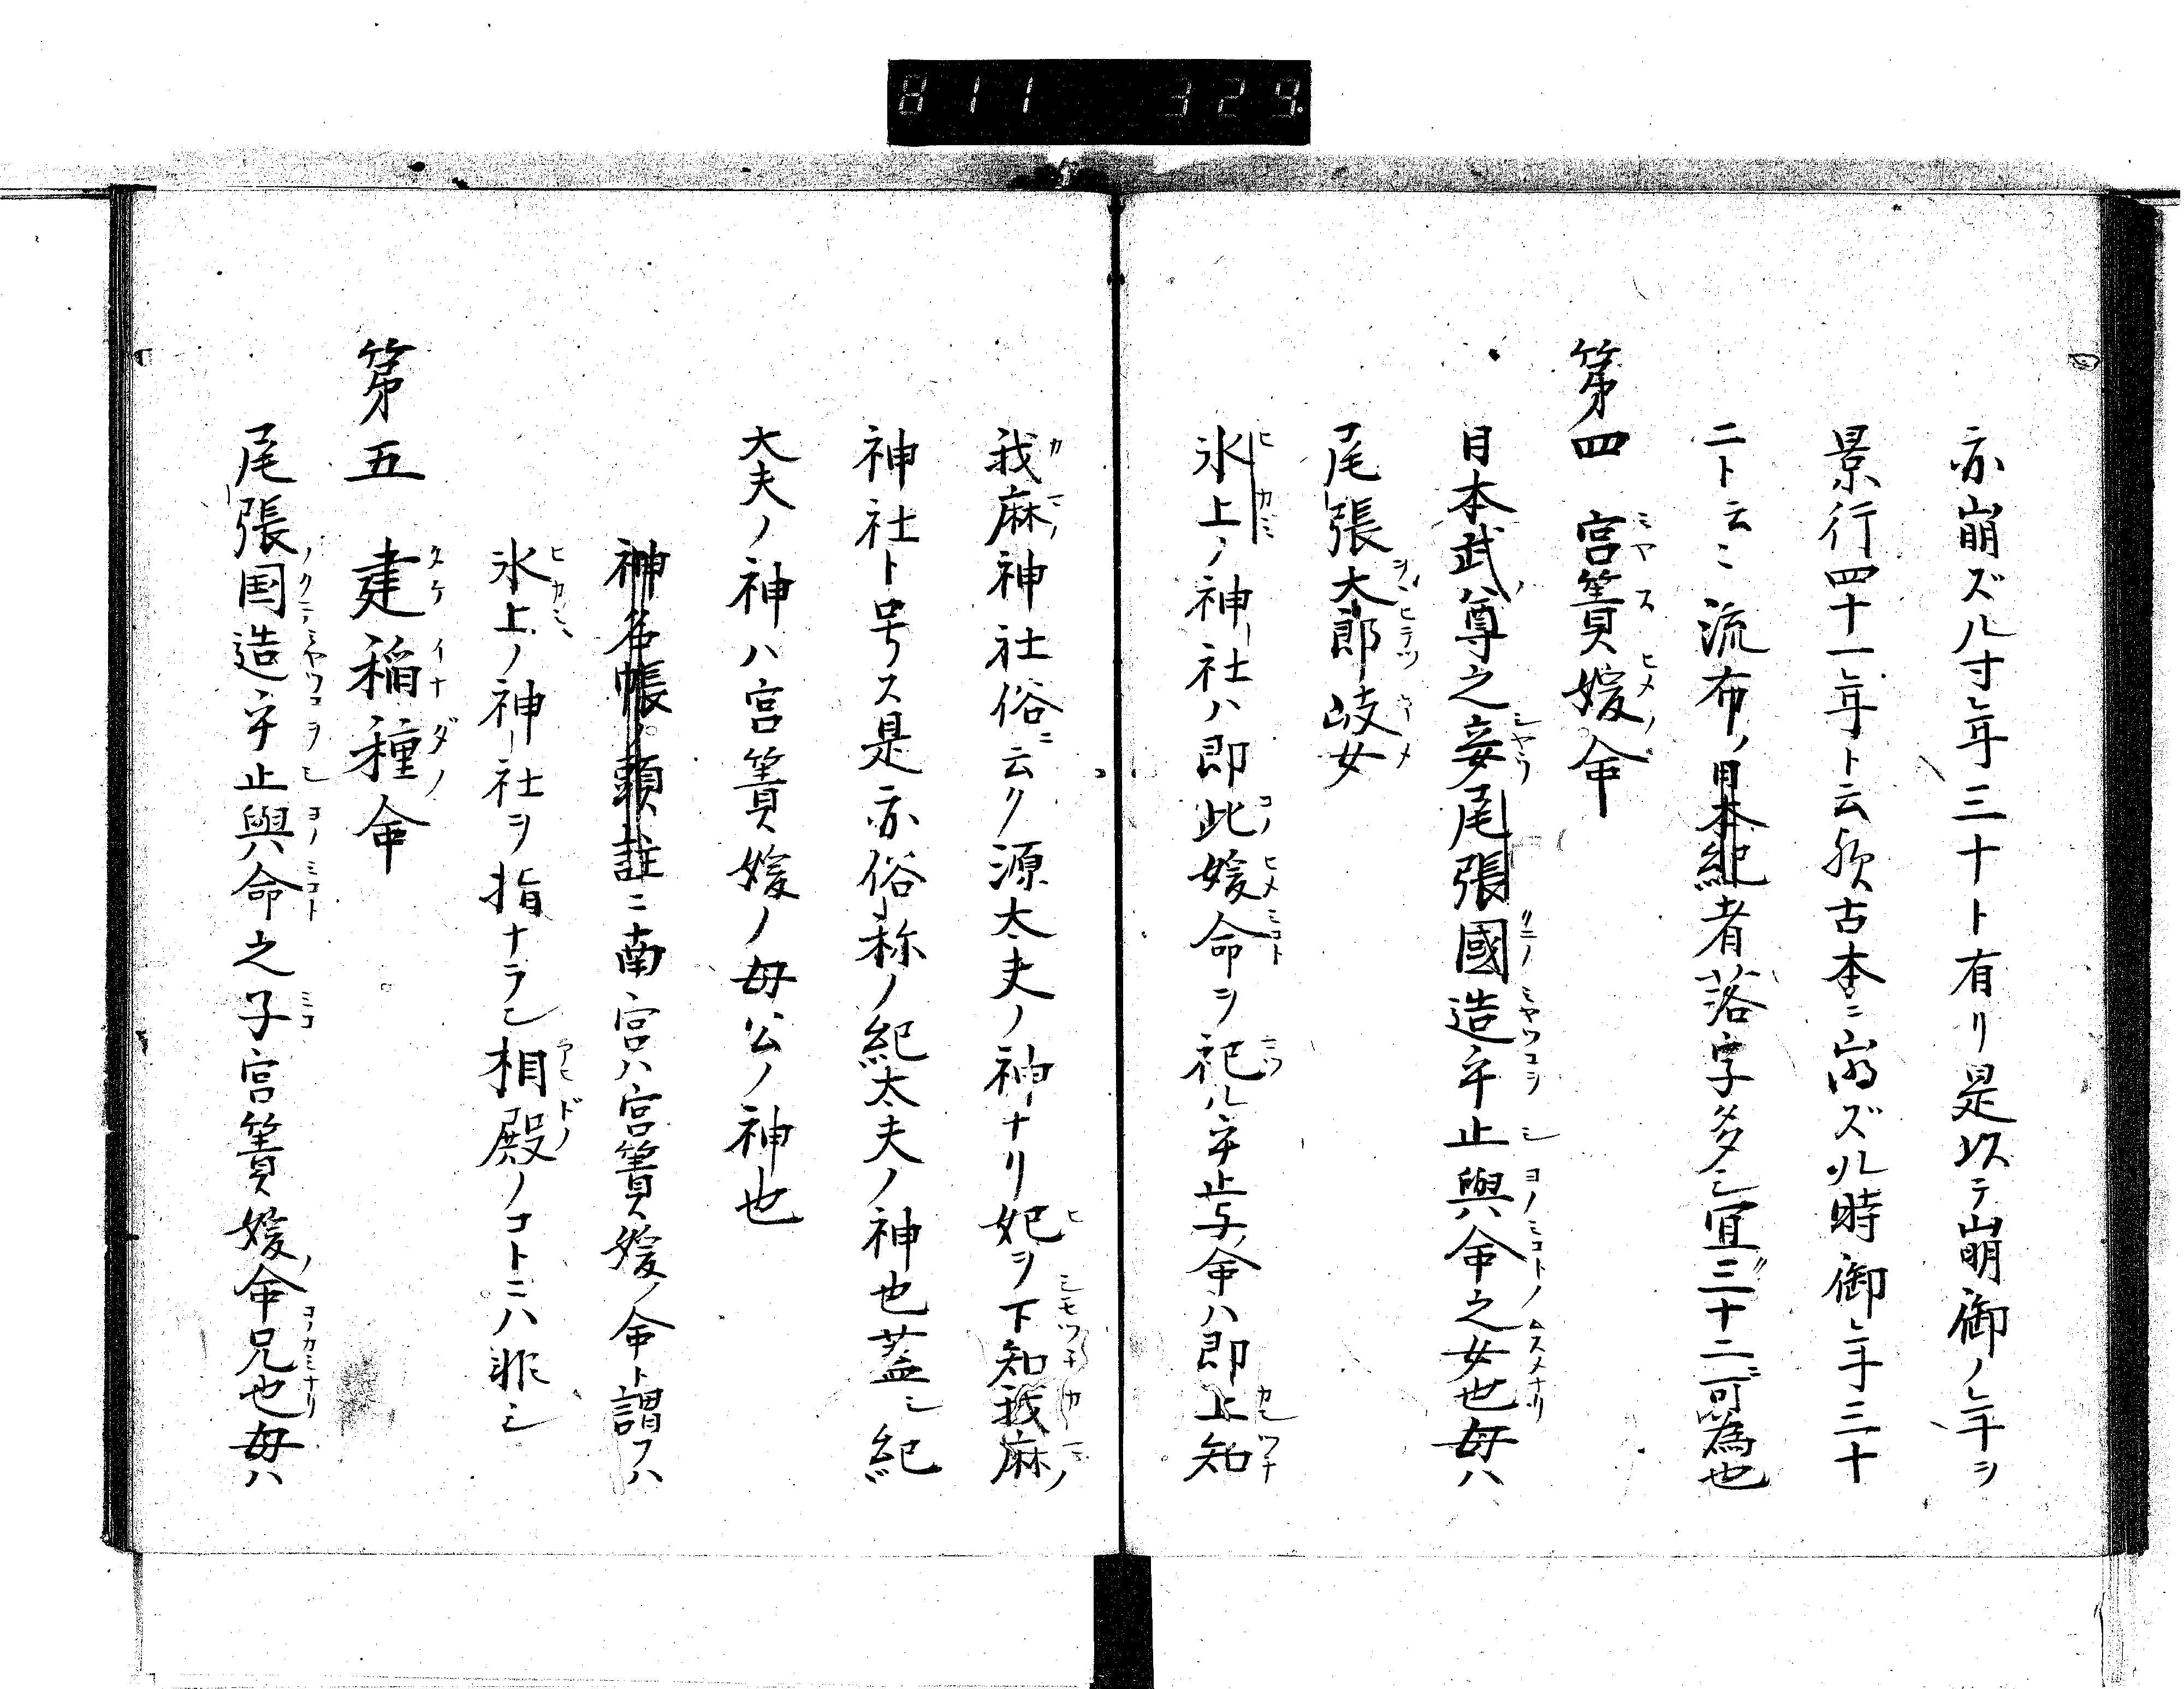 811 329
亦崩ズル寸年三十ト有リ是以テ崩御ノ年ヲ
景行四十一年ト云歟古本ニ崩ズル時御年三十
二ト云ミ流布ノ日本紀者落字多シ宜三十二可為也
第四 宮簀媛命
日本武尊之妾尾張國造乎止與命之女也母ハ
尾張大郎岐女
氷上ノ神社ハ即此媛命ヲ祀ル乎止与命ハ即上知
我麻神社俗ニ云ク源太夫ノ神ナリ妃ヲ下知我麻
神社ト号ス是亦俗称ノ紀太夫ノ神也蓋シ紀
大夫ノ神ハ宮簀媛ノ母公ノ神也
神名帳ノ頭註ニ南宮ハ宮簀媛ノ命ト謂フハ
氷上ノ神社ヲ指ナラン相殿ノコトニハ非シ
第五 建稲種命
尾張国造乎止與命之子宮簀媛命兄也母ハ